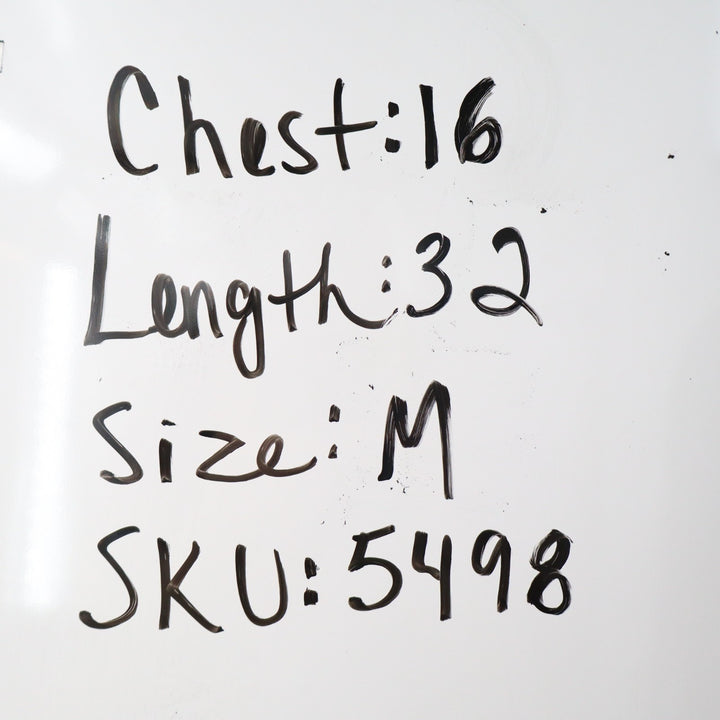 Chest:16
Length:32
Size:M
SKU:5498